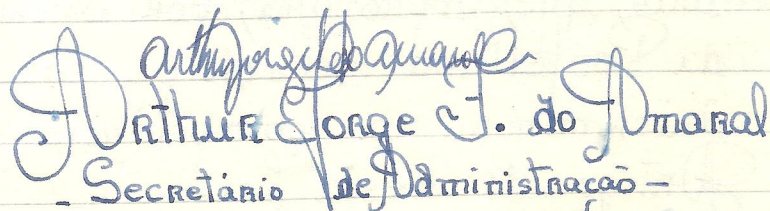 Arthur Jorge J. do Amaral
Arthur Jorge J. do Amaral
- Secretário de Administração -